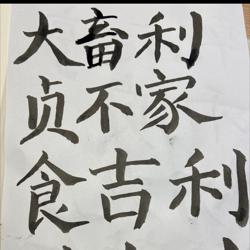 大畜利
贞不家
食吉利